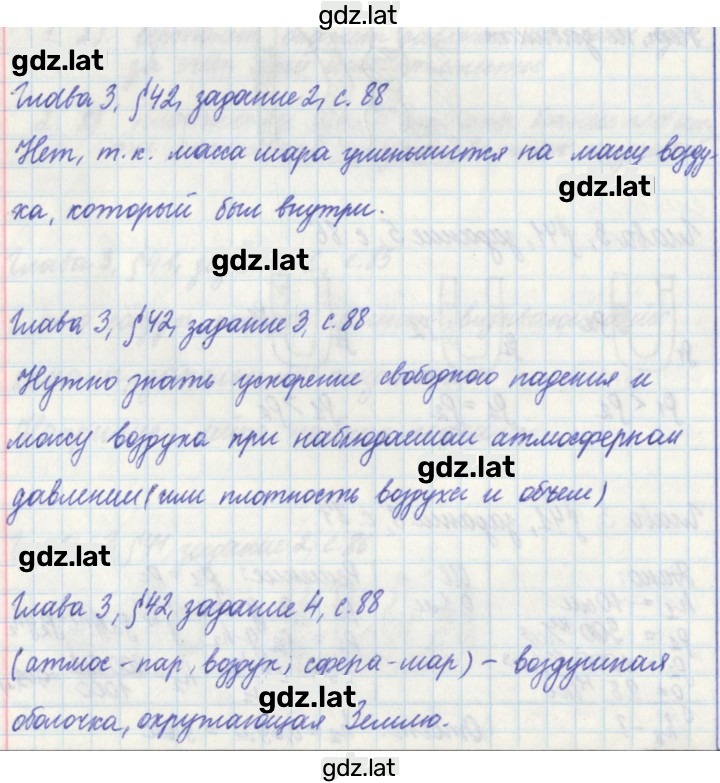 gdz.lat
gdz.lat
Глава 3, §42, задание 2, с. 88
Нет, т.к. масса шара уменьшится на массу возду-
gdz.lat
ха, который был внутри.
gdz.lat
Глава 3, §42, задание 3, с. 88
Нужно знать ускорение свободного падения и
массу воздуха при наблюдаемом атмосферном
gdz.lat
давлении (или плотность воздуха и объем)
gdz.lat
Глава 3, §42, задание 4, с. 88
(атмос - пар, воздух; сфера - шар) - воздушная
gdz.lat
оболочка, окружающая Землю.
gdz.lat